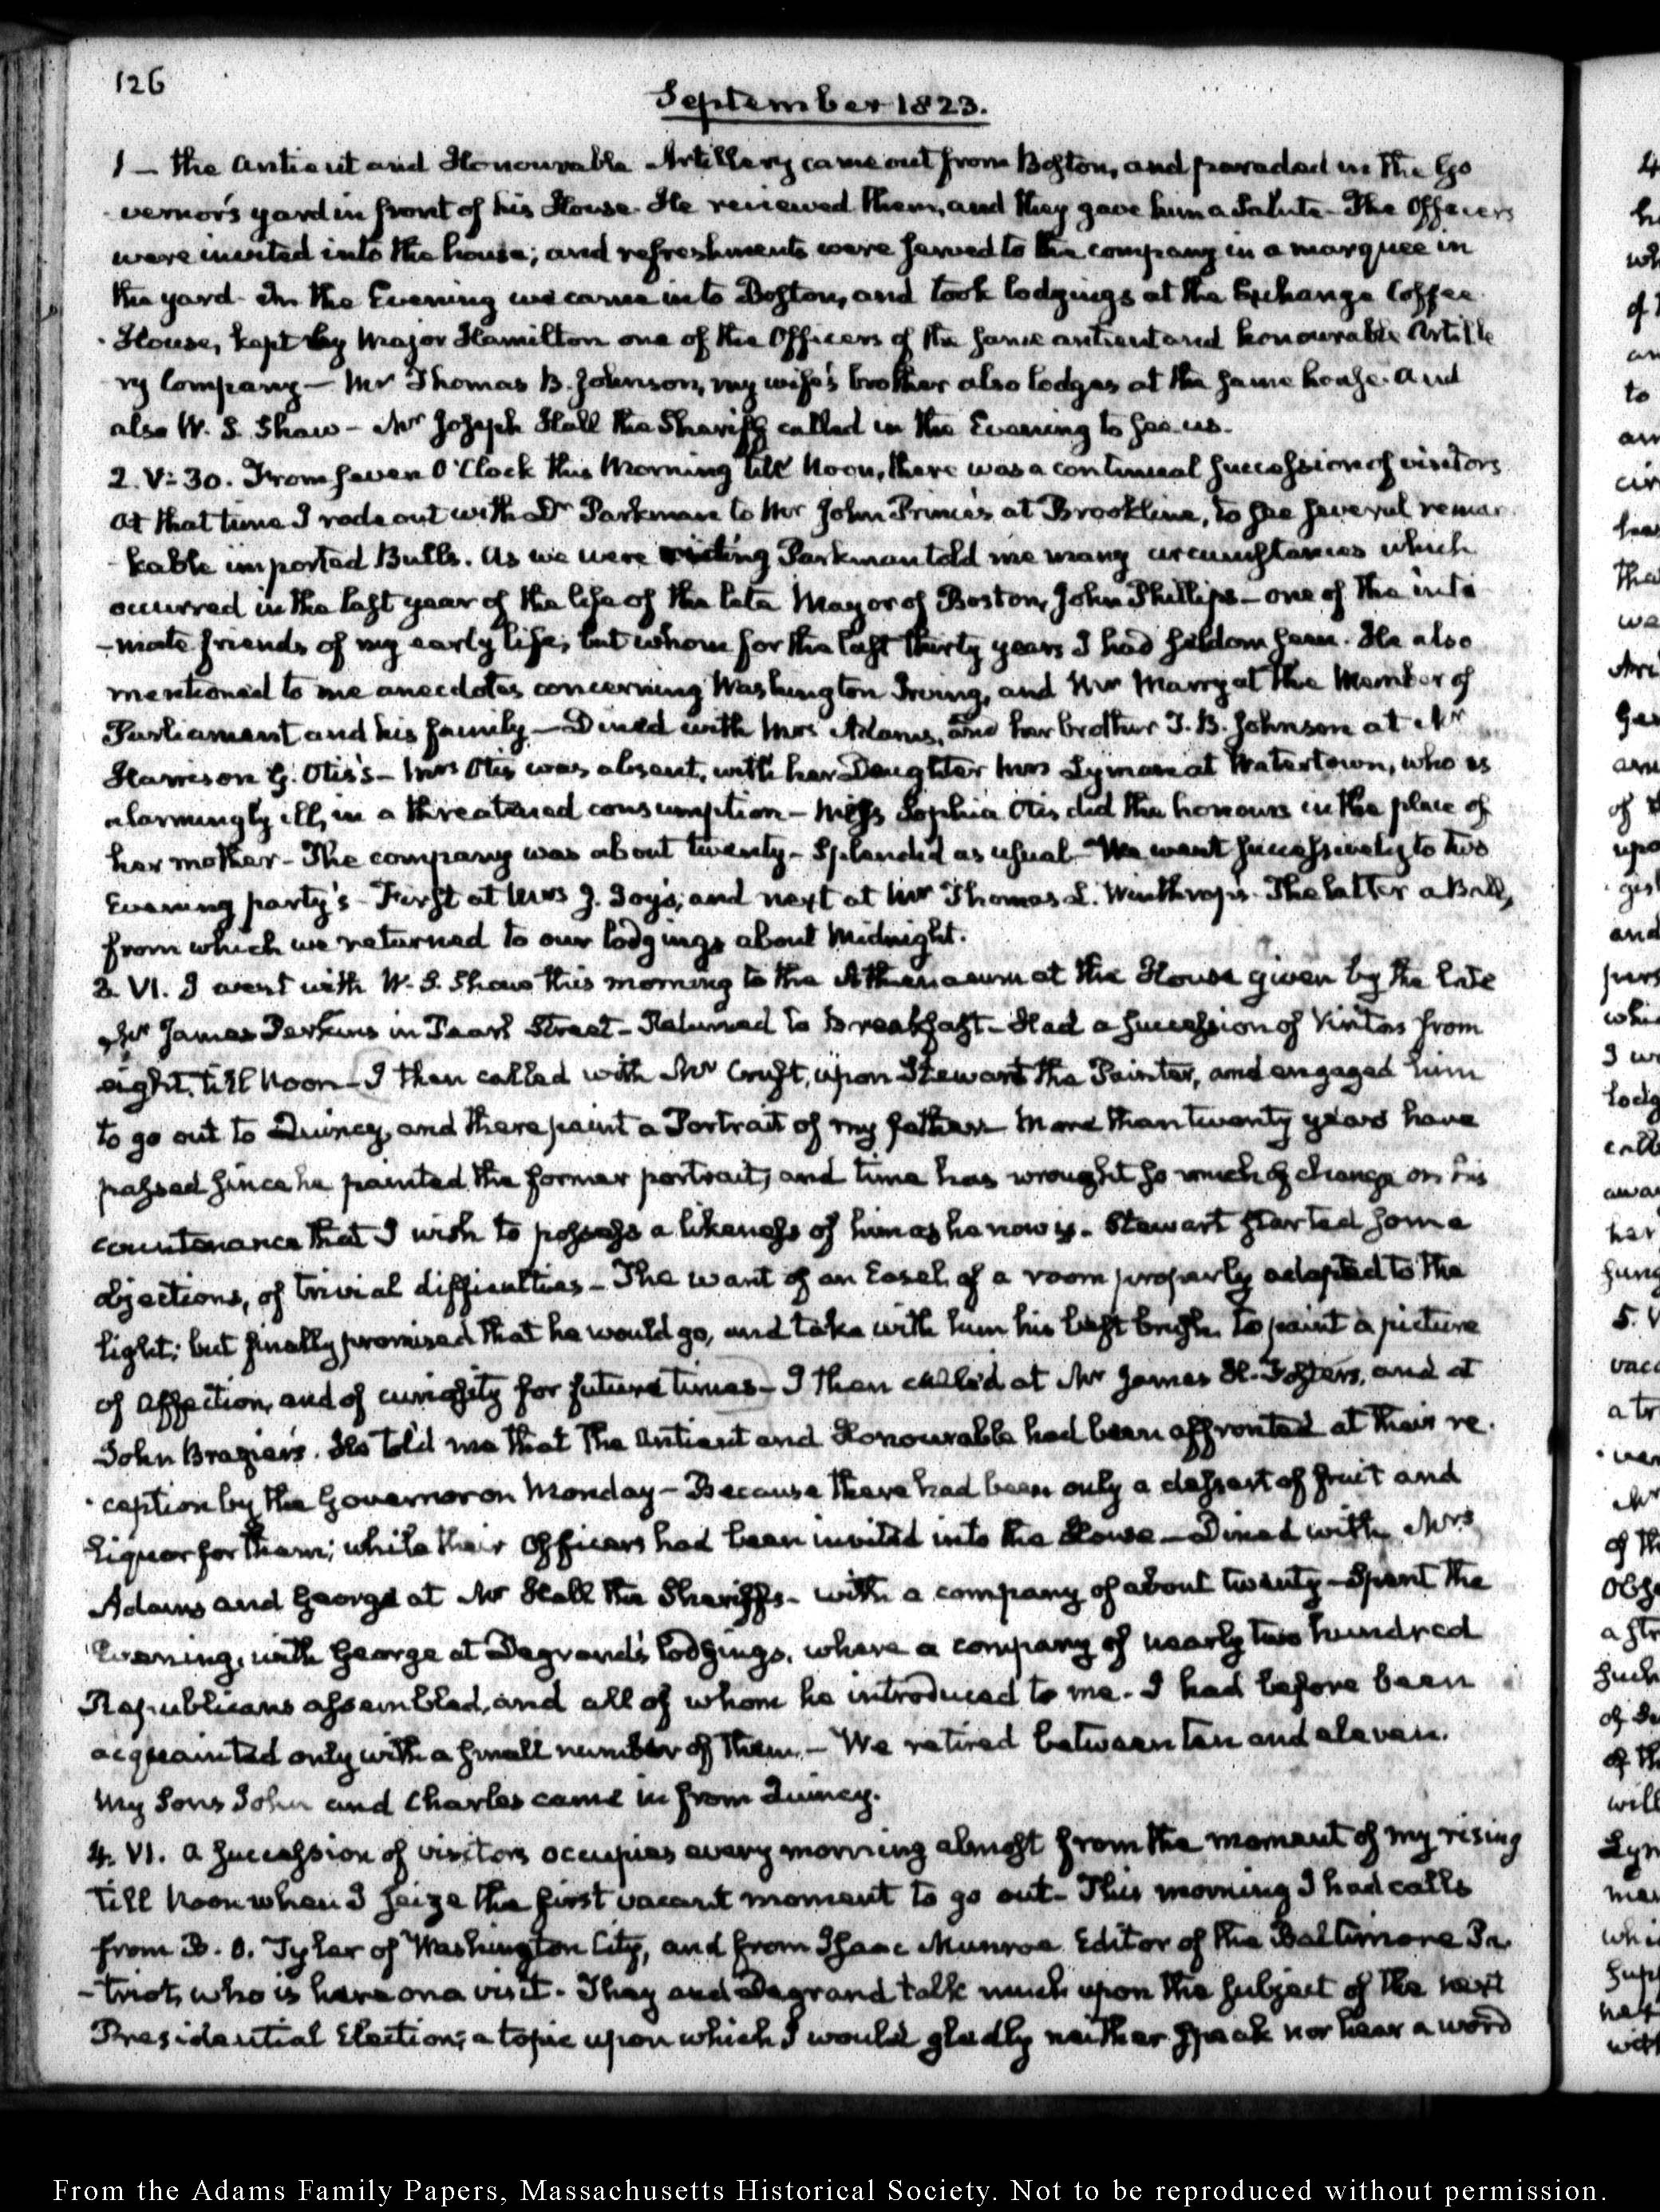 126
September 1823.
1 — the Antient and Honourable Artillery came out from Boston, and paraded in the Go
vernor's yard in front of his House. He reviewed them, and they gave him a Salute — The Officers
were invited into the house; and refreshments were served to the company in a marquee in
the yard. In the Evening we came into Boston, and took lodgings at the Exchange Coffee
House, kept by Major Hamilton one of the Officers of the same antient and honourable Artille
ry Company — Mr Thomas B. Johnson, my wife's brother also lodges at the same house. And
also W. S. Shaw — Mr Joseph Hall the Sheriff called in the Evening to see us.
2. V:30. From seven O'Clock this Morning till Noon, there was a continual succession of visitors
At that time I rode out with Dr Parkman to Mr John Prince's at Brookline, to see several remar
kable imported Bulls. As we were riding Parkman told me many circumstances which
occurred in the last year of the life of the late Mayor of Boston, John Phillips — one of the inti
-mate friends of my early life; but whom for the last thirty years I had seldom seen. He also
mentioned to me anecdotes concerning Washington Irving, and Mr Marryat the Member of
Parliament and his family — Dined with Mrs Adams, and her brother T. B. Johnson at Mr
Harrison G. Otis's — Mrs Otis was absent, with her Daughter Mrs Lyman at Watertown, who is
alarmingly ill, in a threatened consumption — Miss Sophia Otis did the honours in the place of
her mother — The company was about twenty — Splendid as usual — We went successively to two
Evening party's — First at Mrs J. Joy's; and next at Mr Thomas L. Winthrop's. The latter a Ball,
from which we returned to our lodgings about Midnight.
3. VI. I went with W. S. Shaw this morning to the Athenaeum at the House given by the late
Mr James Perkins in Pearl Street — Returned to Breakfast — Had a succession of Visitors from
eight till Noon — I then called with Mr Cruft, upon Stewart the Painter, and engaged him
to go out to Quincy, and there paint a Portrait of my father — More than twenty years have
passed since he painted the former portrait, and time has wrought so much of change on his
countenance that I wish to possess a likeness of him as he now is. Stewart started some
objections, of trivial difficulties — The want of an Easel, of a room properly adapted to the
light; but finally promised that he would go, and take with him his best brush, to paint a picture
of affection, and of curiosity for future times — I then called at Mr James H. Foster's, and at
John Brazier's. He told me that the Antient and Honourable had been affronted at their re
ception by the Governor on Monday — Because there had been only a dessert of fruit and
Liquor for them; while their Officers had been invited into the House — Dined with Mrs
Adams and George at Mr Hall the Sheriff's — with a company of about twenty — Spent the
Evening, with George at Degrand's lodgings, where a company of nearly two hundred
Republicans assembled, and all of whom he introduced to me — I had before been
acquainted only with a small number of them — We retired between ten and eleven.
My Sons John and Charles came in from Quincy.
4. VI. A succession of visitors occupies every morning almost from the moment of my rising
till Noon when I seize the first vacant moment to go out — This morning I had calls
from B. O. Tyler of Washington City, and from Isaac Munroe Editor of the Baltimore Pa
-triot, who is here on a visit. They and Degrand talk much upon the subject of the next
Presidential Election; a topic upon which I would gladly neither speak nor hear a word
From the Adams Family Papers, Massachusetts Historical Society. Not to be reproduced without permission.